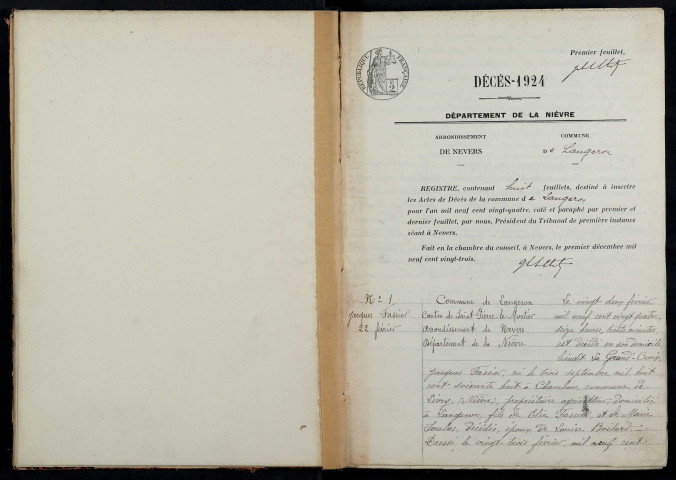 Premier feuillet,
RÉPUBLIQUE FRANÇAISE
2
DÉCÈS-1924
DÉPARTEMENT DE LA NIÈVRE
ARRONDISSEMENT
DE NEVERS
COMMUNE
De Langeron
REGISTRE, contenant huit feuillets, destiné à inscrire
les Actes de Décès de la commune de Langeron
pour l'an mil neuf cent vingt-quatre, coté et paraphé par premier et
dernier feuillet, par nous, Président du Tribunal de première instance
séant à Nevers.
Fait en la chambre du conseil, à Nevers, le premier décembre mil
neuf cent vingt-trois.
No 1
Jacques Tassier
22 février
Commune de Langeron
Canton de Saint Pierre-le-Moûtier
Arrondissement de Nevers
Département de la Nièvre
Le vingt deux février
mil neuf cent vingt quatre,
seize heures, trente minutes
est décédé en son domicile
lieudit La Grand-
Jacques Tassier, né le trois septembre mil huit
cent soixante huit à Chambon, commune de
Livry, (Nièvre), propriétaire agriculteur, domicilié
à Langeron, fils de Tassier, et de Marie
décédés, époux de Louise
Dressé le vingt trois février, mil neuf cent